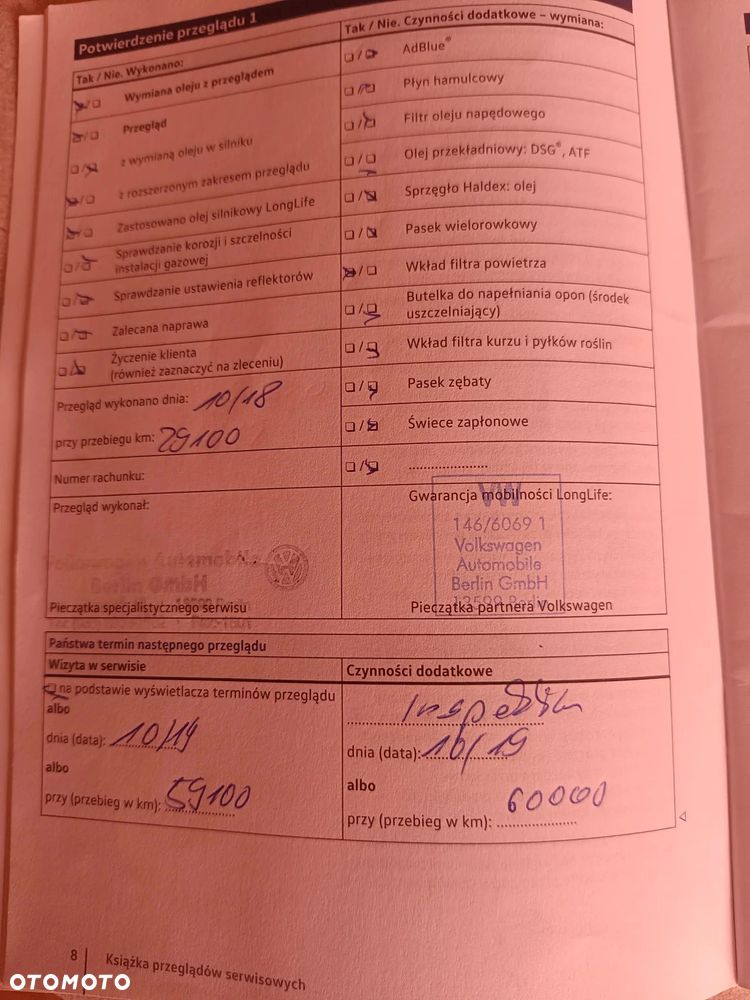 Potwierdzenie przeglądu 1
Tak / Nie. Wykonano:
Wymiana oleju z przeglądem
Przegląd
z wymianą oleju w silniku
z rozszerzonym zakresem przeglądu
Zastosowano olej silnikowy LongLife
Sprawdzanie korozji i szczelności
instalacji gazowej
Sprawdzanie ustawienia reflektorów
Zalecana naprawa
Życzenie klienta
(również zaznaczyć na zleceniu)
Przegląd wykonano dnia: 10/18
przy przebiegu km: 29100
Numer rachunku:
Przegląd wykonał:
Volkswagen Automobile
Berlin GmbH
Pieczątka specjalistycznego serwisu
Tak / Nie. Czynności dodatkowe – wymiana:
AdBlue®
Płyn hamulcowy
Filtr oleju napędowego
Olej przekładniowy: DSG®, ATF
Sprzęgło Haldex: olej
Pasek wielorowkowy
Wkład filtra powietrza
Butelka do napełniania opon (środek
uszczelniający)
Wkład filtra kurzu i pyłków roślin
Pasek zębaty
Świece zapłonowe
......................
Gwarancja mobilności LongLife:
VW
146/6069 1
Volkswagen
Automobile
Berlin GmbH
13599 Berlin
Pieczątka partnera Volkswagen
Państwa termin następnego przeglądu
Wizyta w serwisie
na podstawie wyświetlacza terminów przeglądu
albo
dnia (data): 10/19
albo
przy (przebieg w km): 59100
Czynności dodatkowe
Inspektion
dnia (data): 10/19
albo
60000
przy (przebieg w km): ......................
8 | Książka przeglądów serwisowych
OTOMOTO